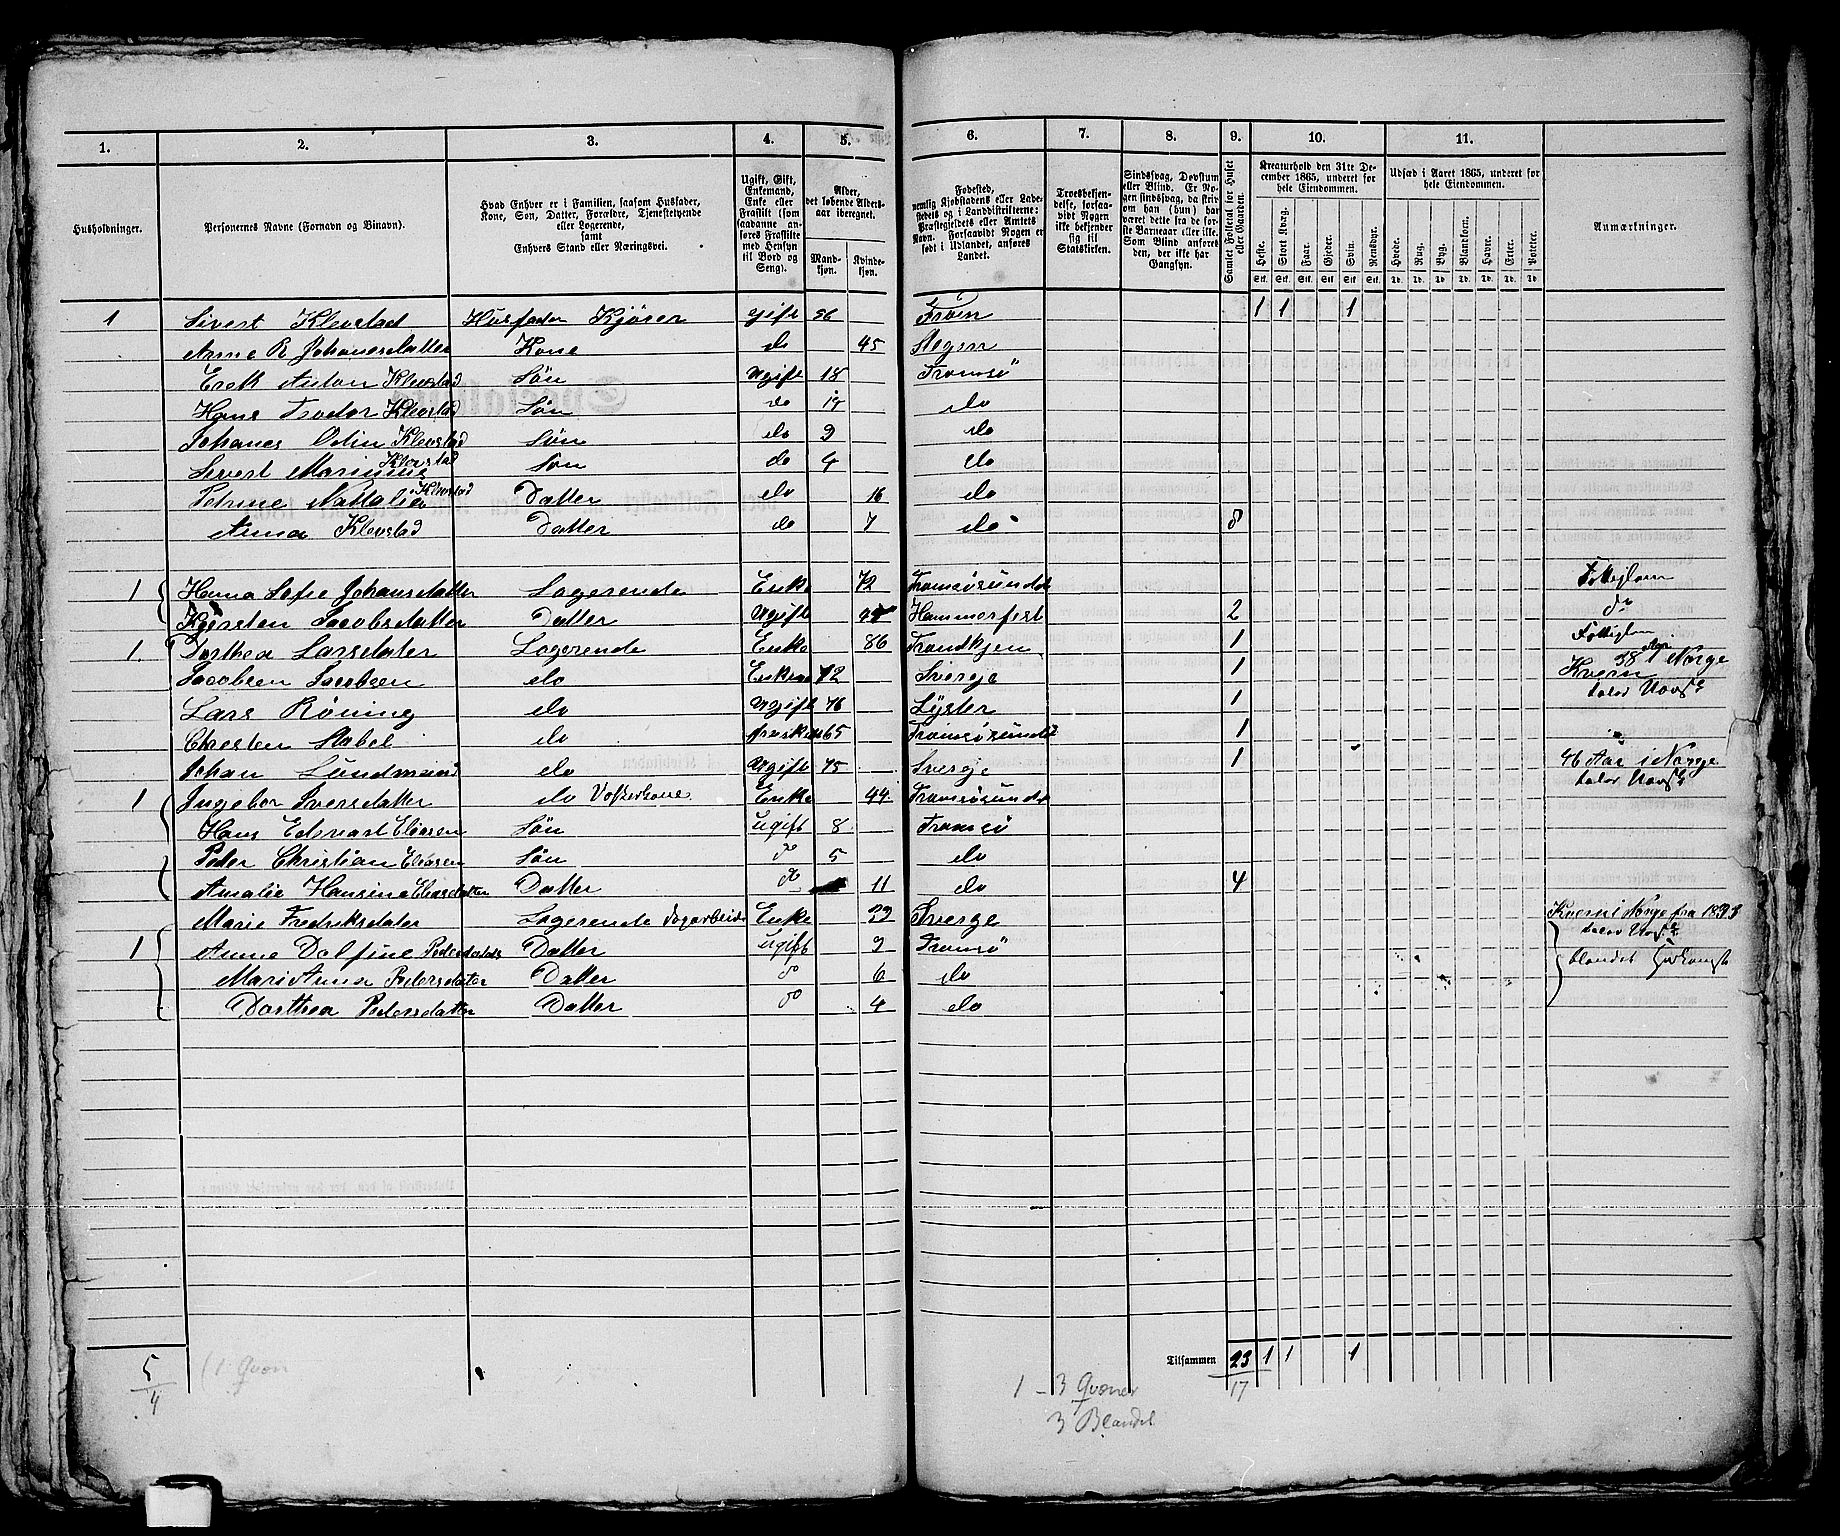 1. 2. 3. 4. 5. 6. 7. 8. 9. 10. 11.
Husholdninger.
Personernes Navne (Fornavn og Binavn).
Hvad Enhver er i Familien, saasom Husfader,
Kone, Søn, Datter, Forældre, Tjenestetyende
eller Logerende,
samt
Enhvers Stand eller Næringsvei.
Ugift, Gift,
Enkemand,
Enke eller
Fraskilt (som
saadanne an-
føres Fraskilte
med Hensyn
til Bord og
Seng).
Alder,
det løbende Alders-
aar iberegnet.
Mand-
kjøn.
Kvinde-
kjøn.
Fødested,
nemlig Kjøbstadens eller Lade-
stedets og i Landdistrikterne:
Præstegjeldets eller Amtets
Navn. Forsaavidt Nogen er
født i Udlandet, anføres
Landet.
Troesbekjen-
delse, forsaa-
vidt Nogen
ikke bekjender
sig til
Statskirken.
Sindssvag, Døvstum
eller Blind. Er No-
gen sindssvag, da skriv
om han (hun) har
været dette fra de før-
ste Barneaar eller ikke.
Som Blind anføres
den, der ikke har
Gangsyn.
Samlet Folketal for Huset
eller Gaarden.
Kreaturhold den 31te De-
cember 1865, underet for
hele Eiendommen.
Heste. Stort Kvæg. Faar. Gjeder. Svin. Rensdyr.
Stk. Stk. Stk. Stk. Stk. Stk.
Udsæd i Aaret 1865, underet for
hele Eiendommen.
Hvede. Rug. Byg. Blandkorn. Havre. Erter. Poteter.
Td. Td. Td. Td. Td. Td. Td.
Anmærkninger.
1 Sivert Klevstad Husfader Kjører gift 56 1 1 1
Anne R Johanesdatter Kone do 45
Erek Anton Klevstad Søn Ugift 18 Tromsø
Hans Teodor Klevstad Søn do do
Johanes Odin Klevstad Søn do 9 do
Sivert Klevstad Søn do 4 do
Petrine Nattalia Klevstad Datter do 16 do
Anna Klevstad Datter do 7 do 8
1 Hanna Sofie Johansdatter Logerende Enke 72 Tromsøsundet Fattiglem
Kirsten Jacobsdatter Datter Ugift Hammerfest 2 do
1 Dorthea Larsdater Logerende Enke 86 Trondhjem 1 Fattiglem
Jacobsen do Sverje 1 Kvæn 38 Aar i Norge
taler Norsk
Lars Røning do Ugift 76 Lyster 1
Chresten Stabel do 65 Tromsøsundet 1
Johan do Ugift 75 Sverje 1 46 Aar i Norge
taler Norsk
1 Ingebor Iversdatter do Vaskerkone Enke 44 Tromsøsundet
Hans Edevart Eliasen Søn ugift 8 Tromsø
Peder Christian Eliasen Søn do 5 do
Amalie Hansine Eliasdatter Datter do 11 do 4
Marie Fredriksdater Logerende Dagarbeide Enke 33 Sverge Kvæn i Norge fra 1833
taler Norsk
1 Anne Dalfine Pedersdatter Datter ugift 9 Tromsø
blandet Herkomst
Mari Anna Pedersdater Datter do 6 do
Dorthea Pedersdatter Datter do 4 do
Tilsammen 23 1 1 1
17
5
4
(1 Qvæn
1 – 3 Qvæner
3 Blandet